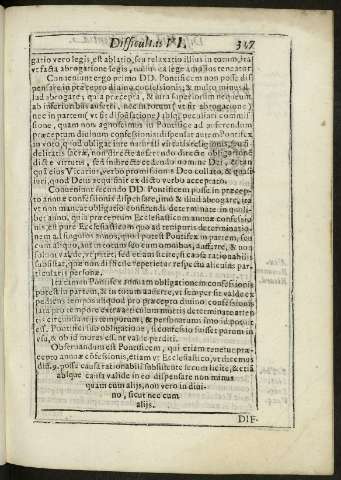 Difficultas VI. 347
gatio vero legis, est ablatio, seu relaxatio illius in totum, ita
vt facta abrogatione legis, nulla ea lege amplius teneatur.
Conveniunt ergo primo DD. Pontificem non posse dis-
pensare in præcepto divino confessionis; & multo minus il-
lud abrogare; quia præcepta, & iura superiorum nequeunt
ab inferioribus auferri, nec in totum (vt fit abrogatione)
nec in partem (vt fit dispensatione) absque peculiari commis-
sione, quam non agnoscimus in Pontifice ad auferendum
præceptum divinum confessionis: dispensat autem Pontifex
in voto, quod obligat iure naturali virtutis religionis,
delitatis sacræ, non directe auferendo directe obligationem
dictæ virtutis, sed indirecte cedendo nomine Dei,
qua eius Vicarius, verbo promissionis Deo
iuri, quod Deus acquisivit ex dicto verbo acceptato.
Conveniunt secundo DD. Pontificem posse in præcep-
to annuæ confessionis dispensare, imo & illud abrogare, ita
vt non maneat obligatio confitendi determinate in quoli-
bet anno, quia præceptum Ecclesiasticum annuæ confessio-
nis est pure Ecclesiasticum quo ad temporis determinatio-
nem ad singulos annos, quod potest Pontifex in partem, seu
cum aliquo, aut in totum seu cum omnibus, auferre, & non
solum valide, vt patet, sed etiam licite, si causa rationabilis
subsistat, quæ non difficile reperietur respectu alicuius par-
ticularis personæ.
Ita etiam Pontifex annuam obligationem confessionis
potest in partem, & in totum auferre, vt semper sit valde ex-
pediens tempus aliquod pro præcepto divino confessionis
lata pro tempore extra articulum mortis determinare atten-
tis circunstantijs temporum, & personarum imo id posset
est. Pontifici sub obligatione, si confessio fuisset parum in
esu, & ob id mores essent valde perditi.
Observandum est Pontificem, qui etiam tenetur præ-
cepto annuæ confessionis, etiam vt Ecclesiastico, vt dicemus
diff. 9. posse causa rationabili subsistente secum licite, & etiã
absque causa valide in eo dispensare non minus
quam cum alijs, non vero in divi-
no, sicut nec cum
alijs.
DIF-